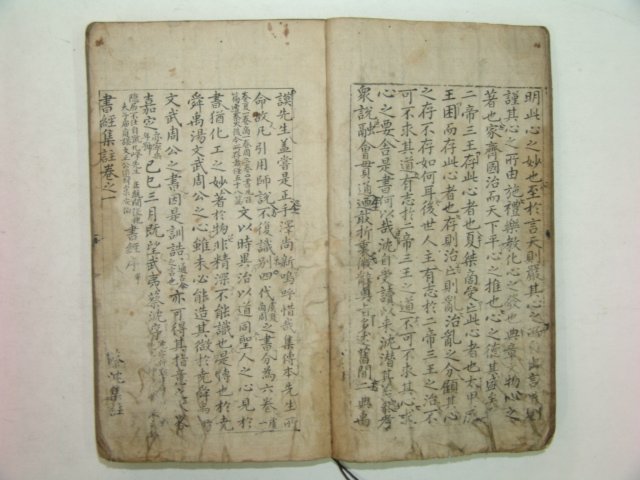 明此心之妙也至於言天則嚴其心之所
謹其心之所由施禮樂敎化心之發也典章文物心之
著也家齊國治而天下平心之推也心之德其盛矣乎
二帝三王存此心者也夏桀商受亡此心者也太甲成
王困而存此心者也存則治亡則亂治亂之分顧其心
之存不存如何耳後世人主有志於二帝三王之治不
可不求其道有志於二帝三王之道不可不求其心求
心之要舍是書何以哉沈自受讀以來沈潛其義參考
衆說融會貫通迺敢折衷微辭奧旨多述舊聞二典禹
謨先生盖嘗是正手澤尚新嗚呼惜哉集傳本先生所
命故凡引用師說不復識別四代之書分為六卷
文以時異治以道同聖人之心見於
書猶化工之妙著於物非精深不能識也是傳也於堯
舜禹湯文武周公之心雖未必能造其微於堯舜禹湯
文武周公之書因是訓詁亦可得其指意之大略
嘉定己巳三月旣望武夷蔡沈序
書經序
書經集註卷之一
蔡沈集註